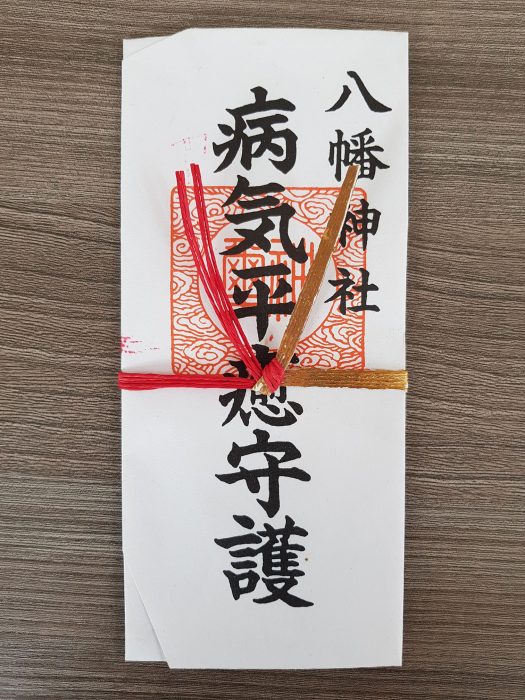 八幡神社
病気平癒守護